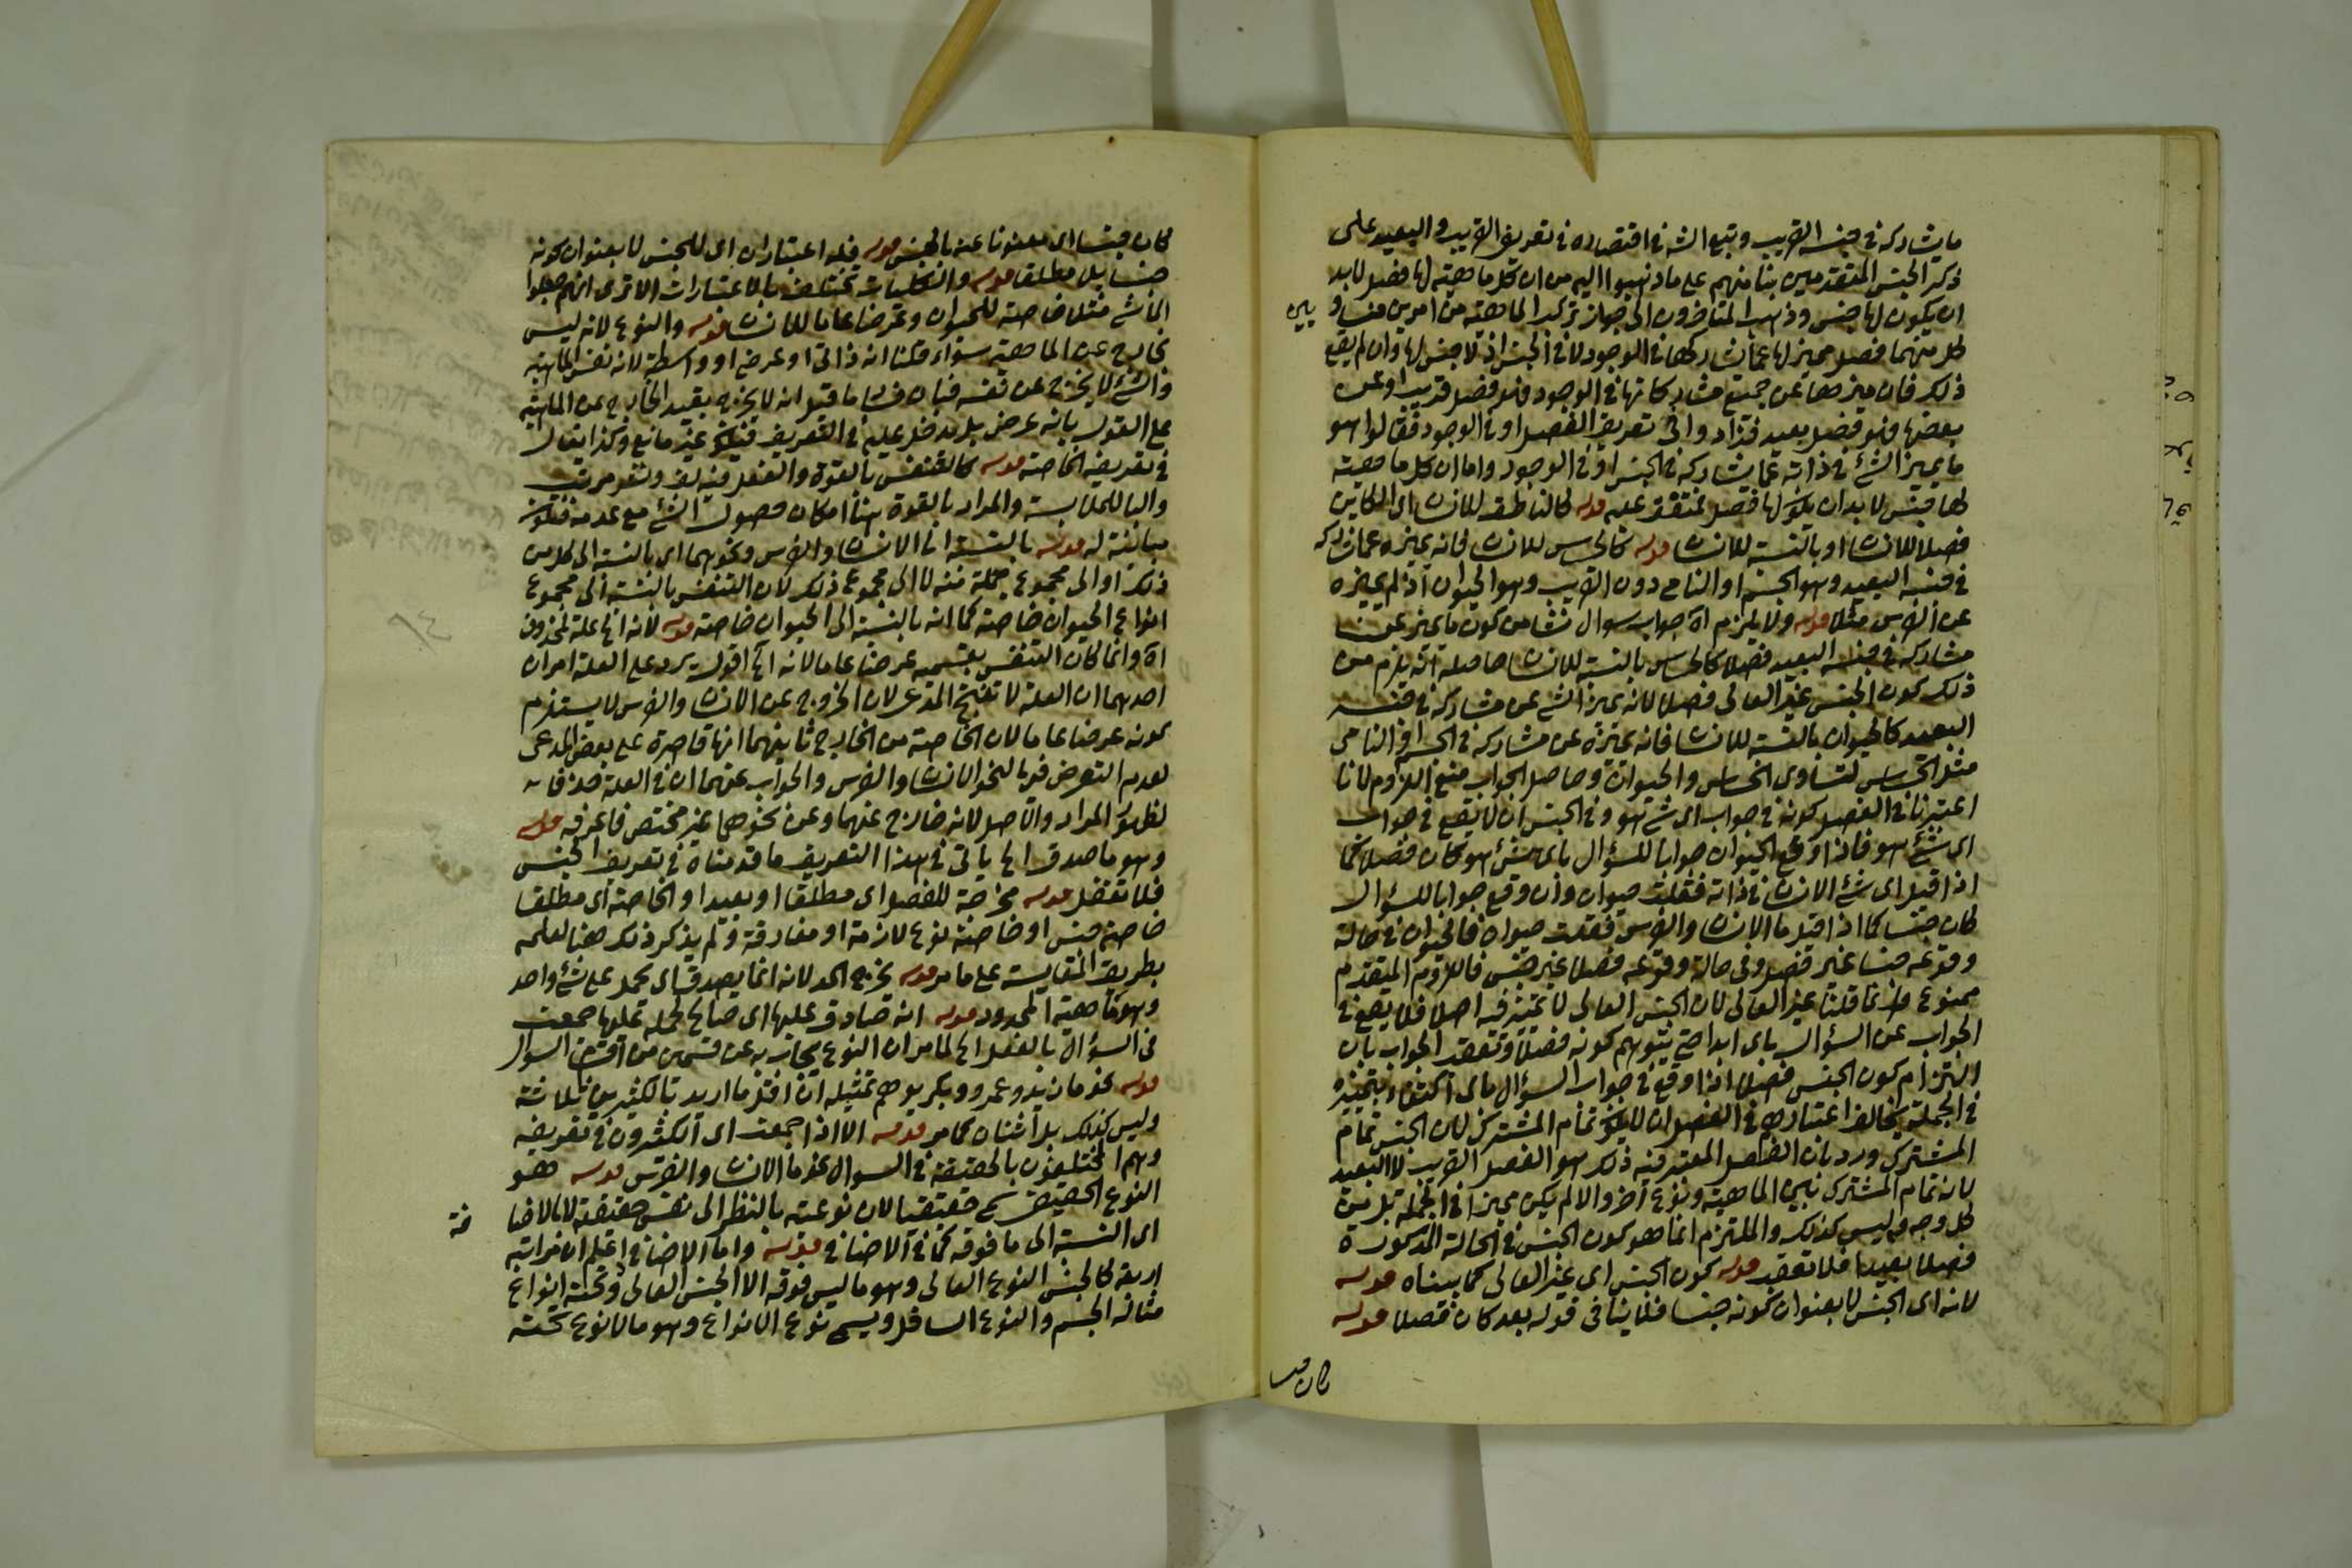 ما يشاركه في جنسه القريب وتبع الشه في اقتصاره في تعريف القريب والبعيد على
ذكر الجنس المتقدمين بنا منهم على ما ذهبوا اليه من ان كل ماهية لها فصل لابد
ان يكون لها جنس وذهب المتاخرون الى جواز تركب الماهية من امرين متساويين
كل منهما فصل مميز لها عما شاركها في الوجود لا في الجنس اذ لا جنس لها وان لم يقع
ذلك فان ميزها عن جميع مشاركاتها في الوجود فهو فصل قريب او عن
بعضها فهو فصل بعيد فزادوا في تعريف الفصل او في الوجود فقالوا هو
ما يميز الشئ في ذاته عما شاركه في الجنس او في الوجود واما ان كل ماهية
لها جنس لابد ان يكون لها فصل فمتفق عليه قوله كالناطق للانسان اى الكاين
فصلا للانسان او بالنسبة للانسان قوله كالحساس للانسان فانه يميزه عما شاركه
في جنسه البعيد وهو الجسم او النامي دون القريب وهو الحيوان اذ لم يميزه
عن الفرس مثلا قوله ولا يلزم اه جواب سوال نشا من كون ما يميز عن
مشاركه في جنسه البعيد فصلا كالحساس بالنسبة للانسان حاصله انه يلزم من
ذلك كون الجنس غير العالى فصلا لانه يميز الشئ عن مشاركه في جنسه
البعيد كالحيوان بالنسبة للانسان فانه يميزه عن مشاركه في الجسم او النامى
مثل الحساس لتساوى الحساس والحيوان وحاصل الجواب منع اللزوم لانا
اعتبرنا في الفصل كونه في جواب اى شئ هو وفي الجنس ان لا يقع في جواب
اى شئ هو فاذا وقع الحيوان جوابا للسؤال باى شئ هو كان فصلا كما
اذا قيل اى شئ الانسان في ذاته فقلت حيوان وان وقع جوابا للسؤال
كان جنسا كما اذا قيل ما الانسان والفرس فقلت حيوان فالحيوان في حالة
وقوعه جنسا غير فصل وفى حالة وقوعه فصلا غير جنس فاللزوم المتقدم
ممنوع وانما قلنا غير العالى لان الجنس العالى لا تمييز فيه اصلا فلا يقع في
الجواب عن السؤال باى ابدا حتى يتوهم كونه فصلا وتعقب الجواب بان
التزام كون الجنس فصلا اذا وقع في جواب السؤال باى اكتفاء بتمييزه
في الجملة يخالف اعتبارهم في الفصل ان لا يكون تمام المشترك لان الجنس تمام
المشترك ورد بان الفصل المعتبر فيه ذلك هو الفصل القريب لا البعيد
لانه تمام المشترك بين الماهية ونوع آخر والا لم يكن مميزا في الجملة بل من
كل وجه وليس كذلك والملتزم انما هو كون الجنس في الحالة المذكورة
فصلا بعيدا فلا تعقب قوله كون الجنس اى غير العالى كما بيناه قوله
لانه اى الجنس لا بعنوان كونه جنسا فلا ينافى قوله بعد كان فصلا قوله
كان جنسا
كان جنسا اى معنونا عنه بالجنس قوله فله اعتباران اى للجنس لا بعنوان كونه
جنسا بل مطلقا قوله والكليات تختلف بالاعتبارات الا ترى انهم جعلوا
الماشى مثلا خاصة للحيوان وعرضا عاما للانسان قوله والنوع لانه ليس
بخارج عن الماهية سواء قلنا انه ذاتى او عرضى او واسطة لانه نفس الماهية
والشئ لا يخرج عن نفسه فبان فساد ما قيل انه لا يخرج بقيد الخارج عن الماهية
على القول بانه عرض بل يدخل عليه في التعريف فيكون غير مانع وكذا يقال
في تعريف الخاصة قوله كالتنفس بالقوة والفعل فيه لف ونشر مرتب
والبا للملابسة والمراد بالقوة هنا امكان حصول الشئ مع عدمه فتكون
مباينة له قوله بالنسبة الى الانسان والفرس ونحوهما اى بالنسبة الى كل من
ذلك او الى مجموع جملة منه لا الى مجموع ذلك لان التنفس بالنسبة الى مجموع
انواع الحيوان خاصة كما انه بالنسبة الى الحيوان خاصة قوله لانه الخ علة لمحذوف
اه وانما كان التنفس بقسميه عرضا عاما لانه الخ اقول يرد على العلة امران
احدهما ان العلة لا تنتج المدعى لان الخروج عن الانسان والفرس لا يستلزم
كونه عرضا عاما لان الخاصة من الخارج ثانيهما انها قاصرة على بعض المدعى
لعدم التعرض فيها لنحو الانسان والفرس والجواب عنهما ان في العلة حذفا
لظهور المراد والاصل لانه خارج عنهما وعن نحوهما غير مختص فاعرفه قوله
وهو ما صدق الخ ياتى في هذا التعريف ما قدمناه في تعريف الجنس
فلا تغفل قوله مخرجة للفصل اى مطلقا او بعيدا والخاصة اى مطلقا
خاصة جنس او خاصة نوع لازمة او مفارقة ولم يذكر ذلك هنا لعلمه
بطريق المقايسة على ما مر قوله يخرج الحد لانه انما يصدق اى يحمل على شئ واحد
وهو ماهية المحدود قوله انه صادق عليها اى صالح لحمله عليها جمعت
في السؤال بالفعل الخ لما مر ان النوع يجاب به عن قسمين من اقسام السوال
قوله نحو ما زيد وعمرو وبكر يوهم تمثيله ان اقل ما اريد بالكثيرين ثلاثة
وليس كذلك بل اثنان كما مر قوله الا اذا جمعت اى الكثيرون في تعريفه
وهم المختلفون بالحقيقة في السوال نحو ما الانسان والفرس قوله هو
النوع الحقيقي سمى حقيقيا لان نوعيته بالنظر الى نفس حقيقته لا بالاضافة
اى النسبة الى ما فوقه كما في الاضافي قوله واما الاضافي اعلم ان مراتبه
اربعة كالجنس النوع العالى وهو ما ليس فوقه الا الجنس العالى وتحته انواع
مثاله الجسم والنوع السافل ويسمى نوع الانواع وهو ما لا نوع تحته